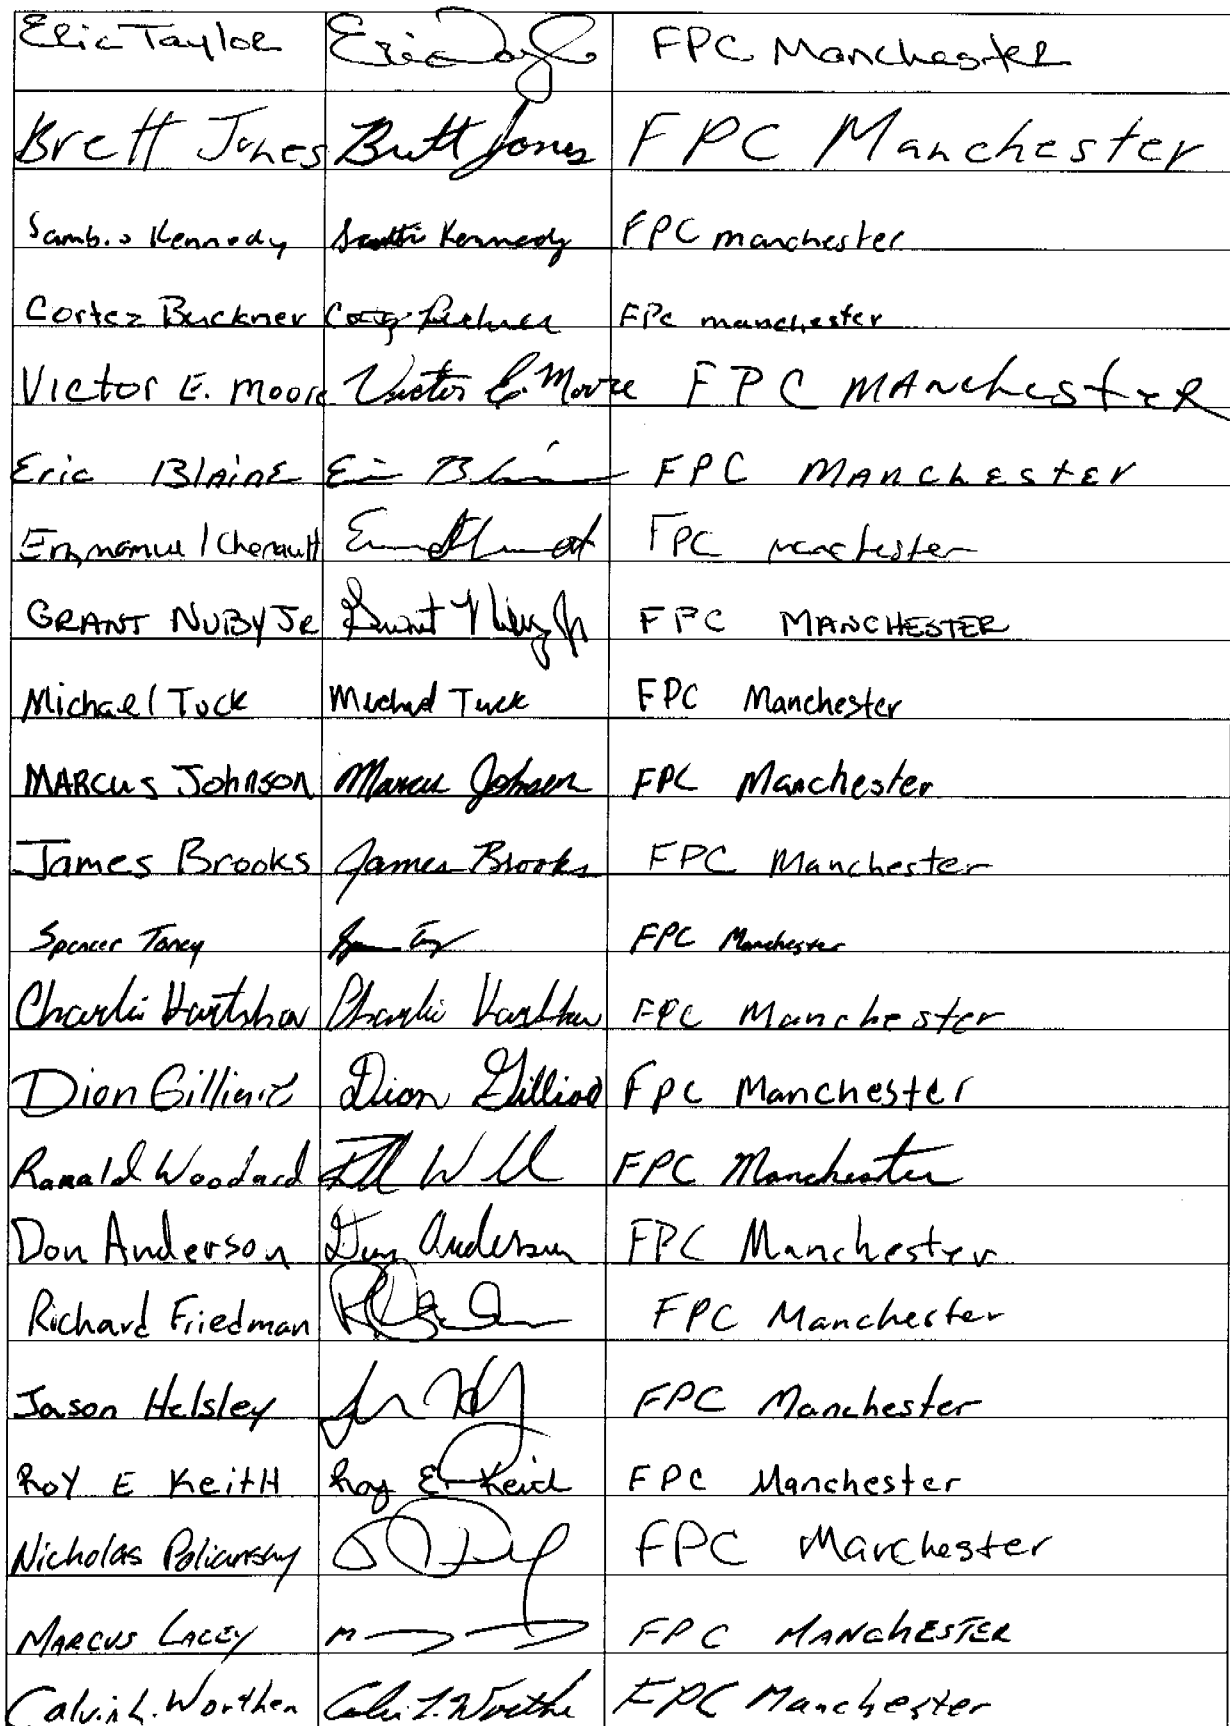 Eric Taylor Eric Taylor FPC Manchester
Brett Jones Brett Jones FPC Manchester
Kennedy Kennedy FPC manchester
Cortez Buckner FPC manchester
Victor E. Moore Victor E. Moore FPC MANchestER
Eric BlAinE FPC MANchEstEr
Emmanuel Chenault FPC manchester
GRANT NUBY JR Grant Nuby Jr FPC MANCHESTER
Michael Tuck Michael Tuck FPC Manchester
MARCUS Johnson Marcus Johnson FPC Manchester
James Brooks James Brooks FPC Manchester
Spencer Toney FPC Manchester
Charlie Charlie FPC Manchester
Dion Gilliard Dion FPC Manchester
Ronald Woodard FPC Manchester
Don Anderson Don Anderson FPC Manchester
Richard Friedman FPC Manchester
Jason Helsley FPC Manchester
RoY E KeitH Roy E Keith FPC Manchester
Nicholas FPC Manchester
MARCUS LACEY FPC MANchESTER
Calvin L. Worthen Calvin L. Worthen FPC Manchester